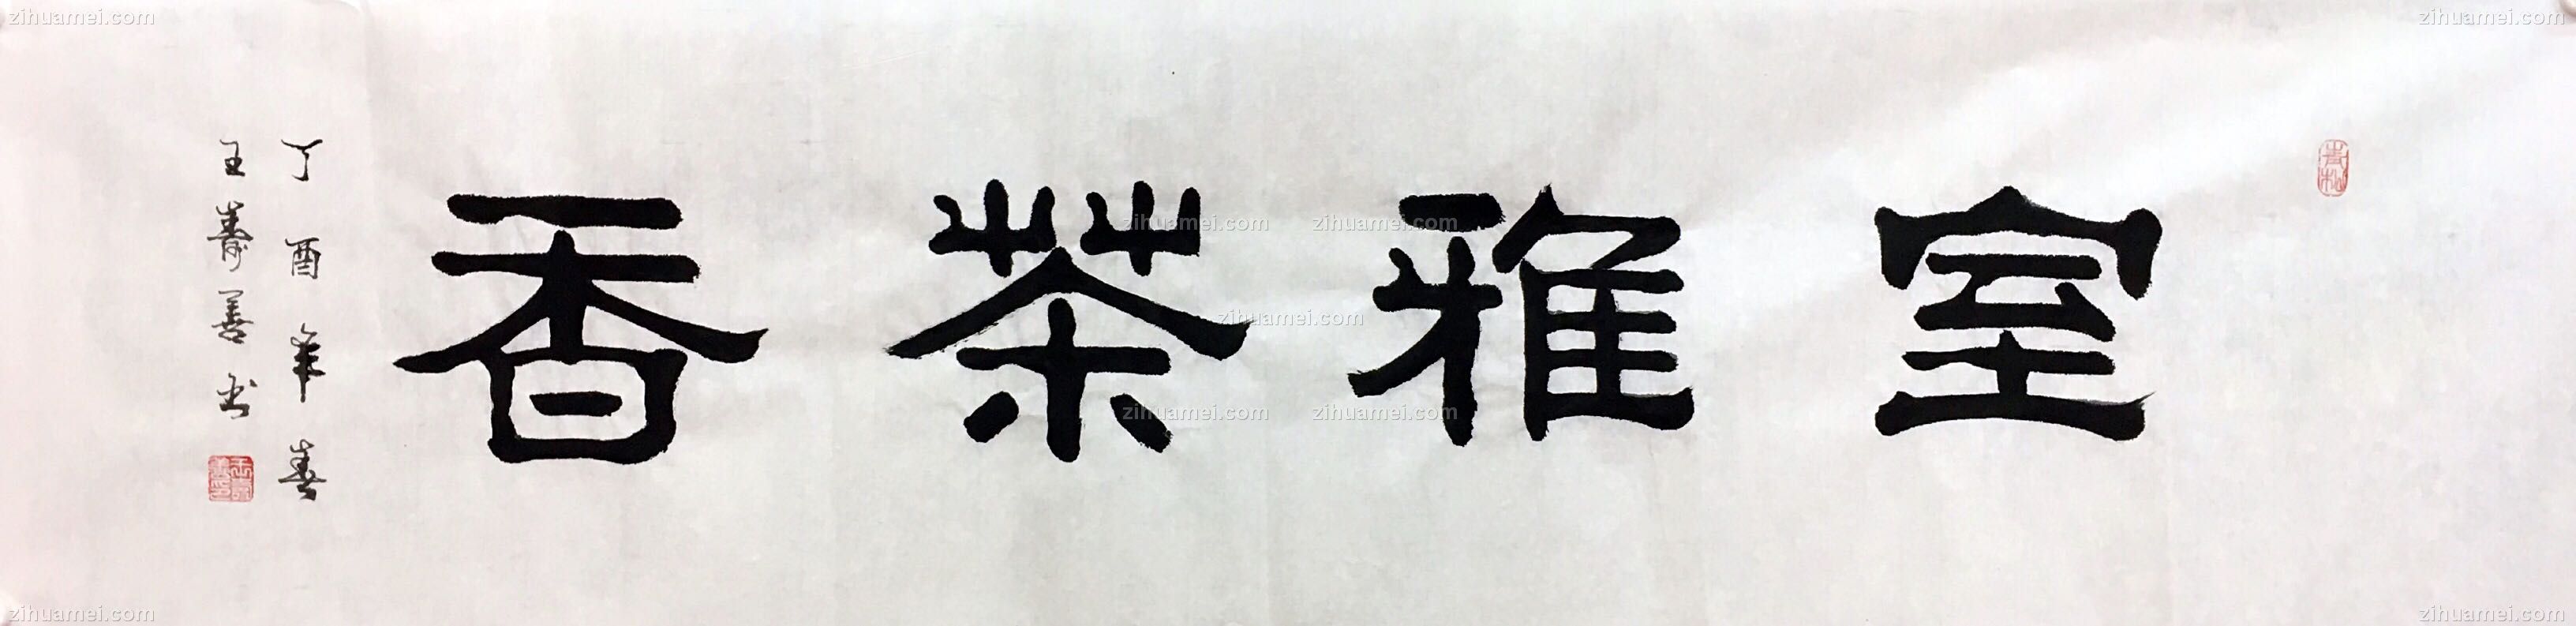 室雅茶香
丁酉年春
王壽善书
青松
王壽善印
zihuamei.com
zihuamei.com
zihuamei.com
zihuamei.com
zihuamei.com
zihuamei.com
zihuamei.com
zihuamei.com
zihuamei.com